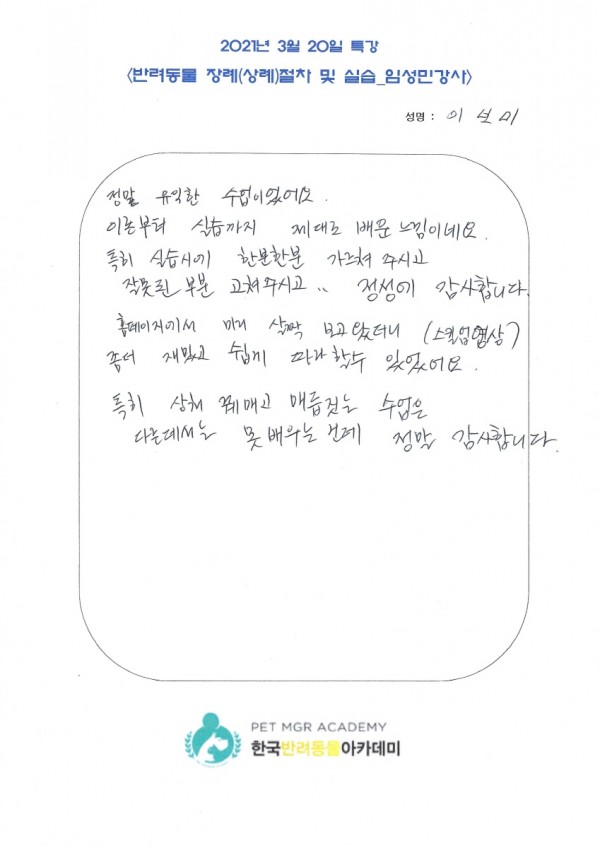 2021년 3월 20일 특강
<반려동물 장례(상례)절차 및 실습_임성민강사>
성명 : 이 보 미
정말 유익한 수업이었어요.
이론부터 실습까지 제대로 배운 느낌이네요.
특히 실습시에 한분한분 가르쳐 주시고
잘못된 부분 고쳐주시고.. 정성에 감사합니다.
홈페이지에서 미리 살짝 보고 왔더니 (스킬업영상)
좀더 재밌고 쉽게 따라할수 있었어요.
특히 상처 꿰매고 매듭짓는 수업은
다른데서는 못배우는건데 정말 감사합니다.
PET MGR ACADEMY
한국반려동물아카데미